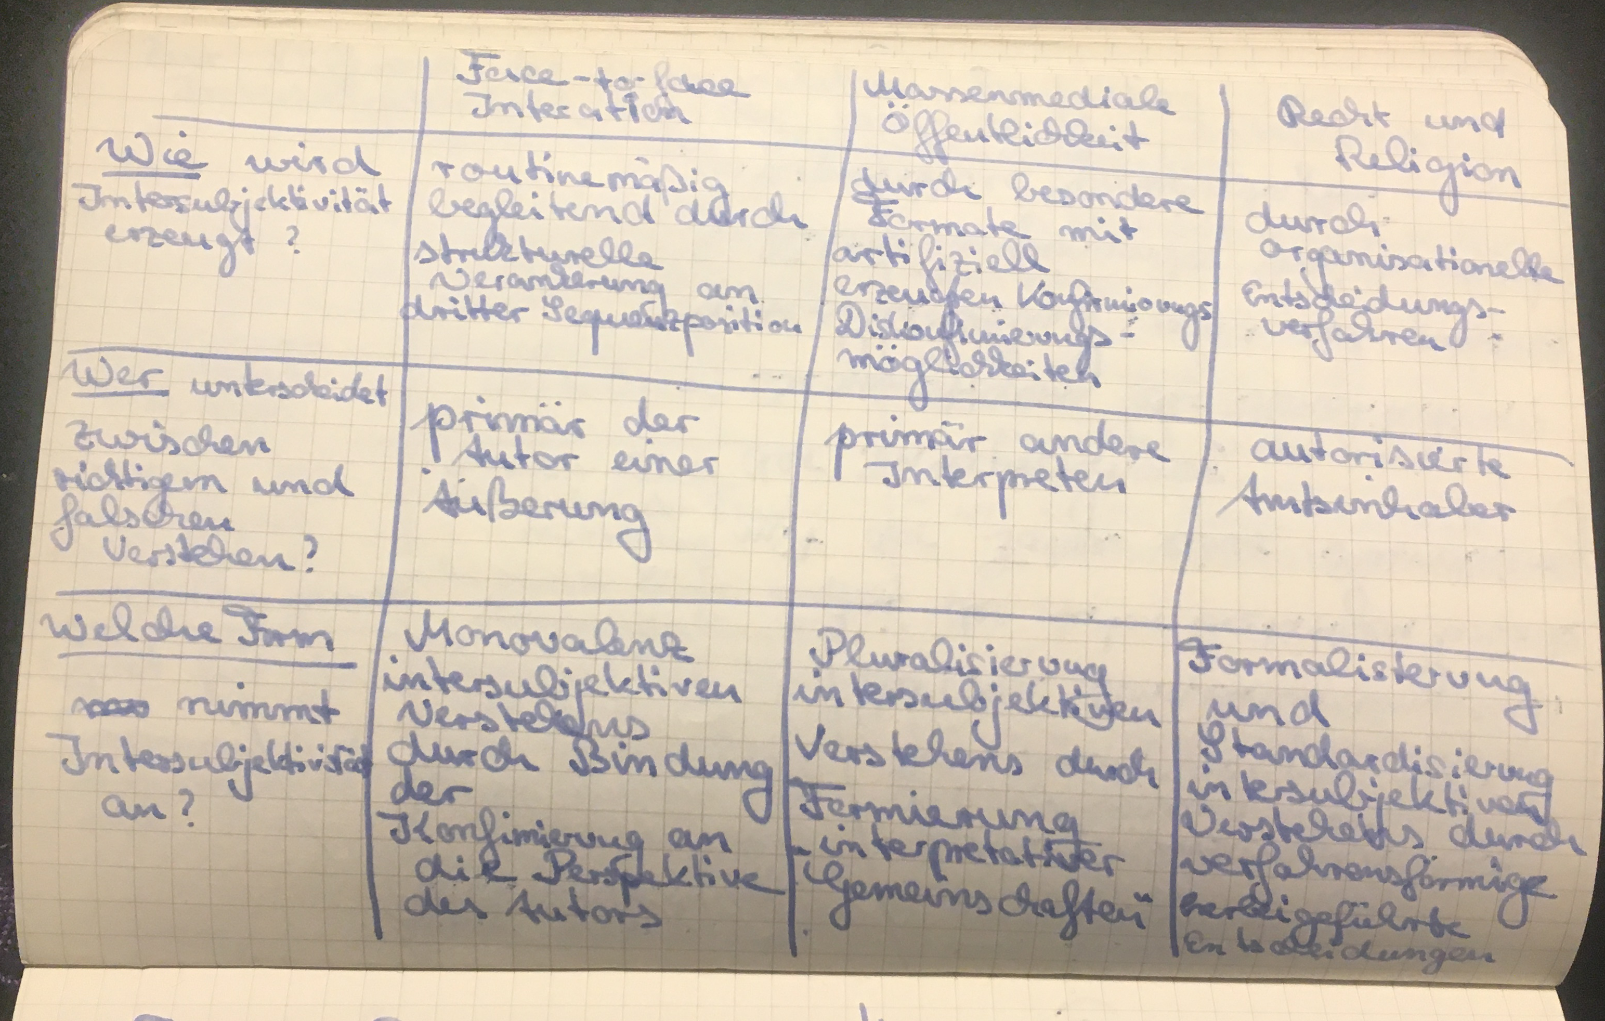 Face-to-face
Interaction
Massenmediale
Öffentlichkeit
Recht und
Religion
Wie wird
Intersubjektivität
erzeugt?
routinemäßig
begleitend durch
strukturelle
Verankerung an
dritter Sequenzposition
durch besondere
Formate mit
artifiziell
erzeugten Konfirmierungs
Diskonfirmierungs-
möglichkeiten
durch
organisationelle
Entscheidungs-
verfahren
Wer unterscheidet
zwischen
richtigem und
falschen
Verstehen?
primär der
Autor einer
Äußerung
primär andere
Interpreten
autorisierte
Amtsinhaber
Welche Form
nimmt
Intersubjektivität
an?
Monovalenz
intersubjektiven
Verstehens
durch Bindung
der
Konfirmierung an
die Perspektive
des Autors
Pluralisierung
intersubjektiven
Verstehens durch
Formierung
"interpretativer
Gemeinschaften"
Formalisierung
und
Standardisierung
intersubjektiven
Verstehens durch
verfahrensförmige
herbeigeführte
Entscheidungen